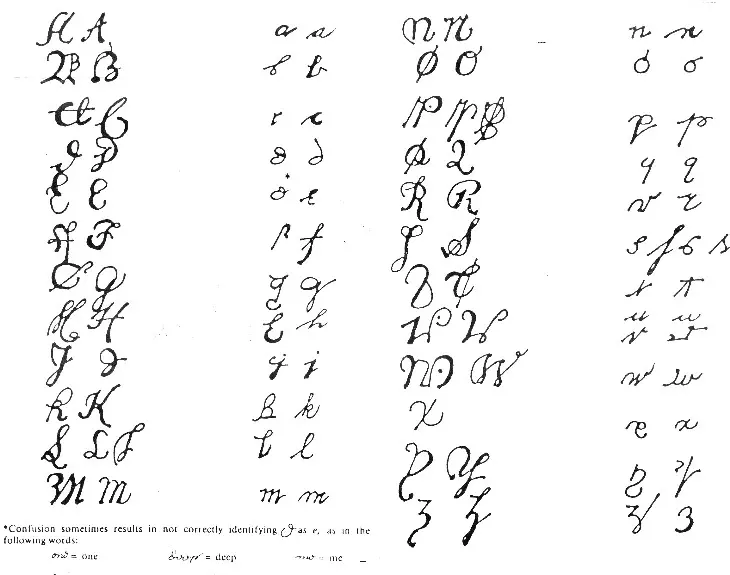 A A a a
B B b b
C C c c
D D d d
E E e e
F F f f
G G g g
H H h h
J J j j
K K k k
L L L l l
M M m m
*Confusion sometimes results in not correctly identifying as e, as in the
following words:
one = one deep = deep me = me
N N n n
O O o o
P P P p p
Q Q q q
R R r r
S S s s s s
T T t t
V V u u
v v
W W w w
X x x
Y Y y y
Z Z z z